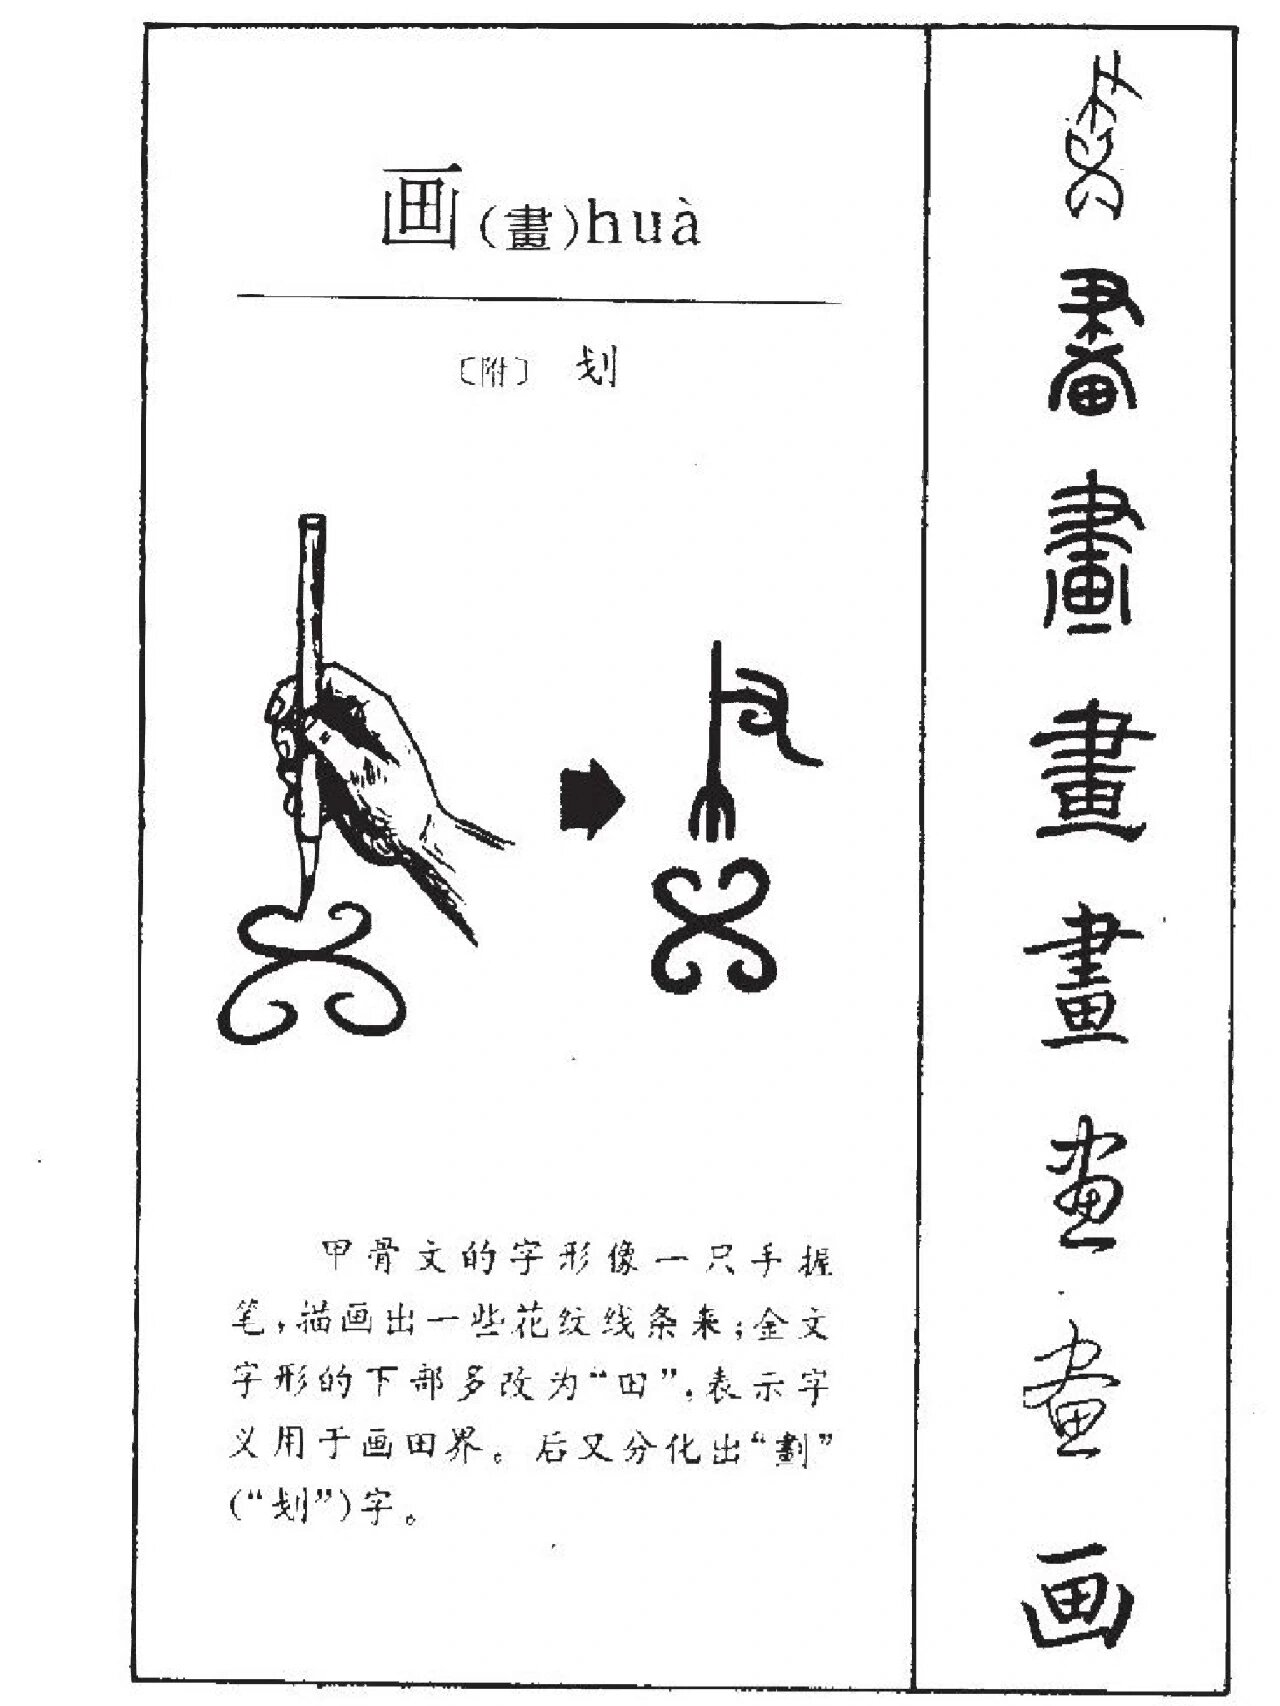 画(畫)huà
〔附〕 划
甲骨文的字形像一只手握
笔,描画出一些花纹线条来;金文
字形的下部多改为“田”,表示字
义用于画田界。后又分化出“劃”
(“划”)字。
畫
畫
畫
畫
畫
画